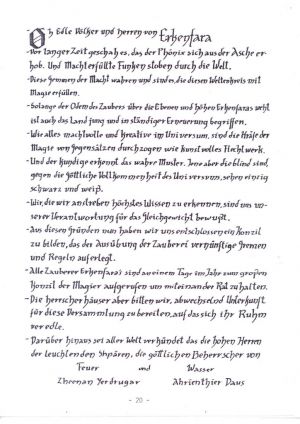 Oh Edle Völker und Herren von Erkenfara
-Vor langer Zeit geschah es, das der Phönix sich aus der Asche er-
hob. Und Machterfüllte Funken stoben durch die Welt.
-Diese Gemmen der Macht wahren und sind es, die diesen Weltenkreis mit
Magie erfüllen.
-Solange der Odem des Zaubers über die Ebenen und Höhen Erkenfaras weht
ist auch das Land jung und in ständiger Erneuerung begriffen.
-Wie alles machtvolle und Kreative im Universum, sind die Kräfte der
Magie von Gegensätzen durchzogen wie kunstvolles Flechtwerk.
-Und der kundige erkennt das wahre Muster. Jene aber die blind sind,
gegen die göttliche Vollkommenheit des Universums, sehen einzig
schwarz und weiß.
-Wir, die wir anstreben höchstes Wissen zu erkennen, sind uns un-
serer Verantwortung für das Gleichgewicht bewußt.
-Aus diesen Gründen nun haben wir uns entschlossen ein Konzil
zu bilden, das der Ausübung der Zauberei vernünftige Grenzen
und Regeln auferlegt.
-Alle Zauberer Erkenfara's sind an einem Tage im Jahr zum großen
Konzil der Magier aufgerufen um miteinander Rat zu halten.
-Die herrscherhäuser aber bitten wir, abwechselnd Unterkunft
für diese Versammlung zu bereiten, auf das sich ihr Ruhm
veredle.
-Darüber hinaus sei aller Welt verkündet das die hohen Herren
der leuchtenden Sphären, die göttlichen Beherrscher von
Feuer und Wasser
Zheenan Yerdrugar Ahrienthier Daus
- 20 -